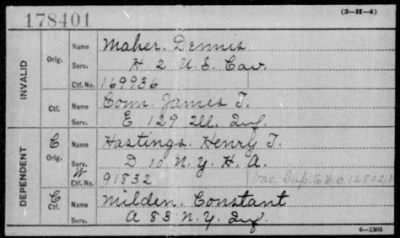 178401
(3-H-4)
INVALID
Orig.
Name Maher. Dennis
Serv. H 2 U.S. Cav.
Ctf. No. 169936
Ctf.
Name Conn. James T.
Serv. E 129 Ill. Inf.
DEPENDENT
C
Orig.
Name Hastings. Henry T.
Serv. D 10 N.Y. H. A.
W
Ctf. No. 91832
C
Ctf.
Name Milden. Constant
Serv. A 83 N.Y. Inf.
6-1303